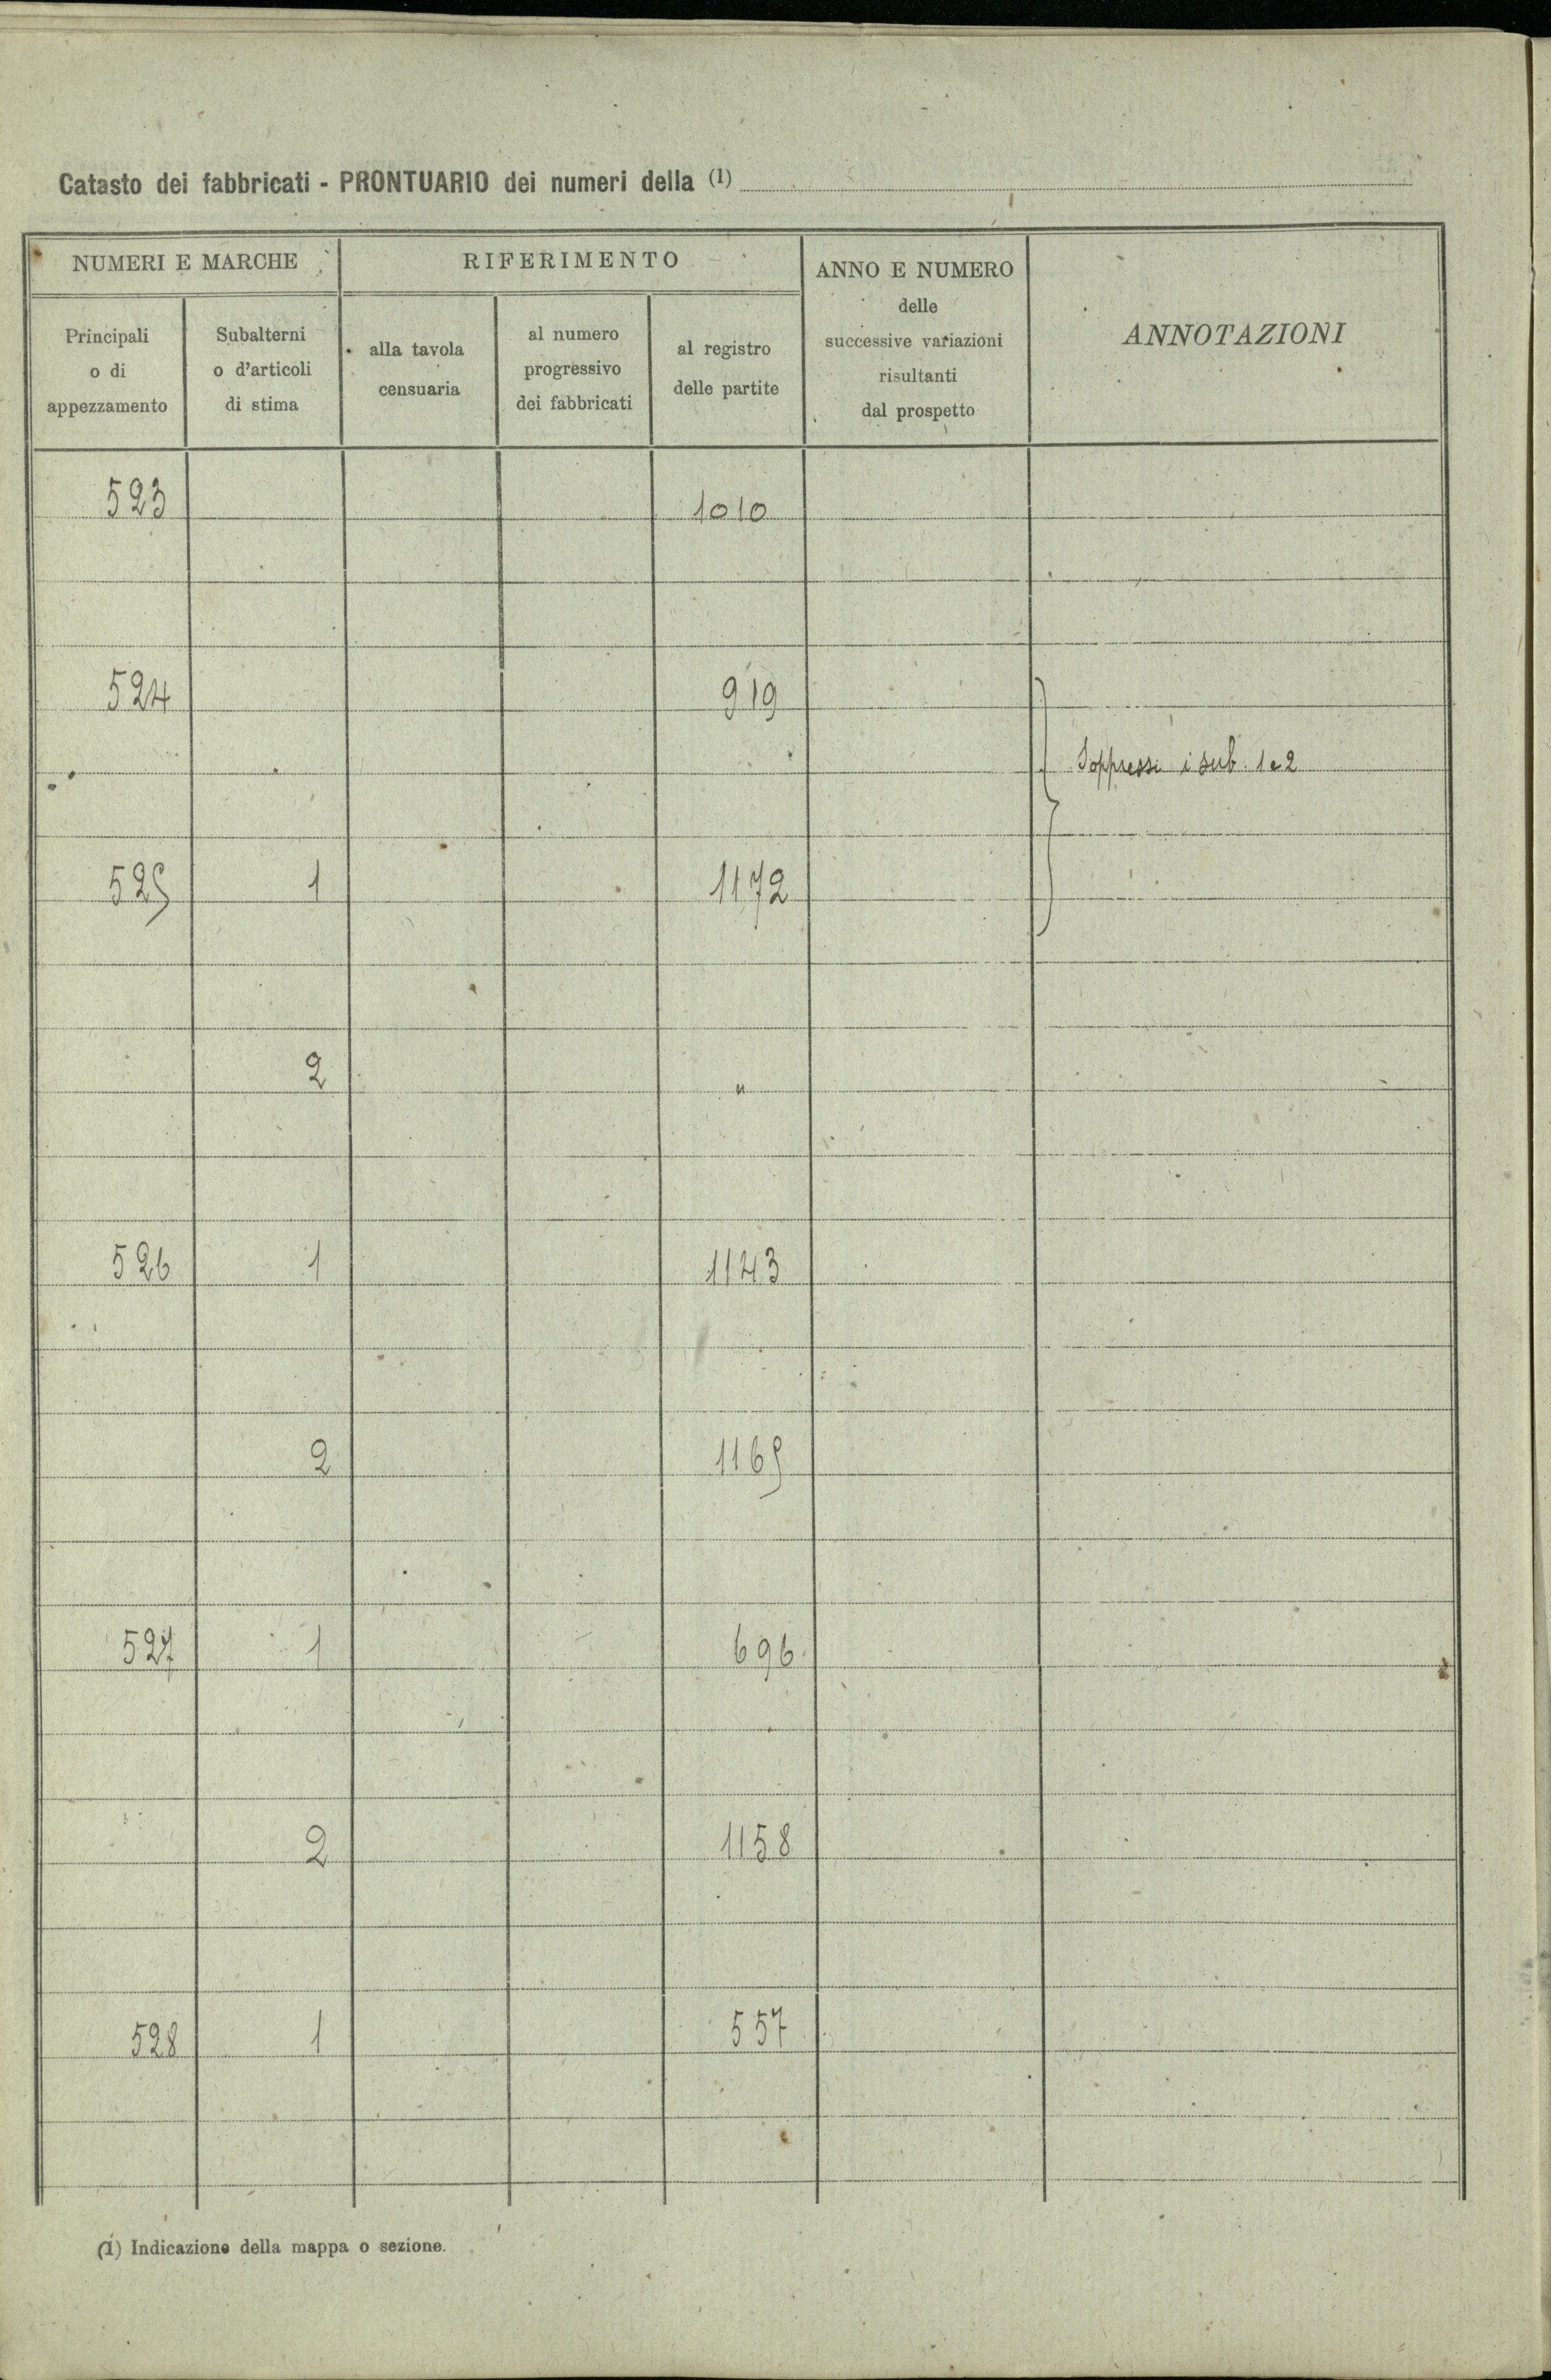 Catasto dei fabbricati - PRONTUARIO dei numeri della (1)
NUMERI E MARCHE
RIFERIMENTO
ANNO E NUMERO
delle
successive variazioni
risultanti
dal prospetto
ANNOTAZIONI
Principali
o di
appezzamento
Subalterni
o d'articoli
di stima
alla tavola
censuaria
al numero
progressivo
dei fabbricati
al registro
delle partite
523 1010
524 919
Soppressi i sub. 1 e 2
525 1 1172
2 "
526 1 1143
2 1165
527 1 696
2 1158
528 1 557
(1) Indicazione della mappa o sezione.